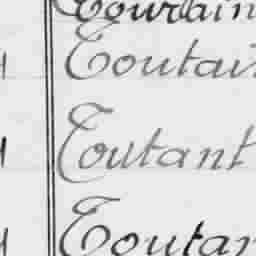 Tourtain
Toutai
Toutant
Toutan